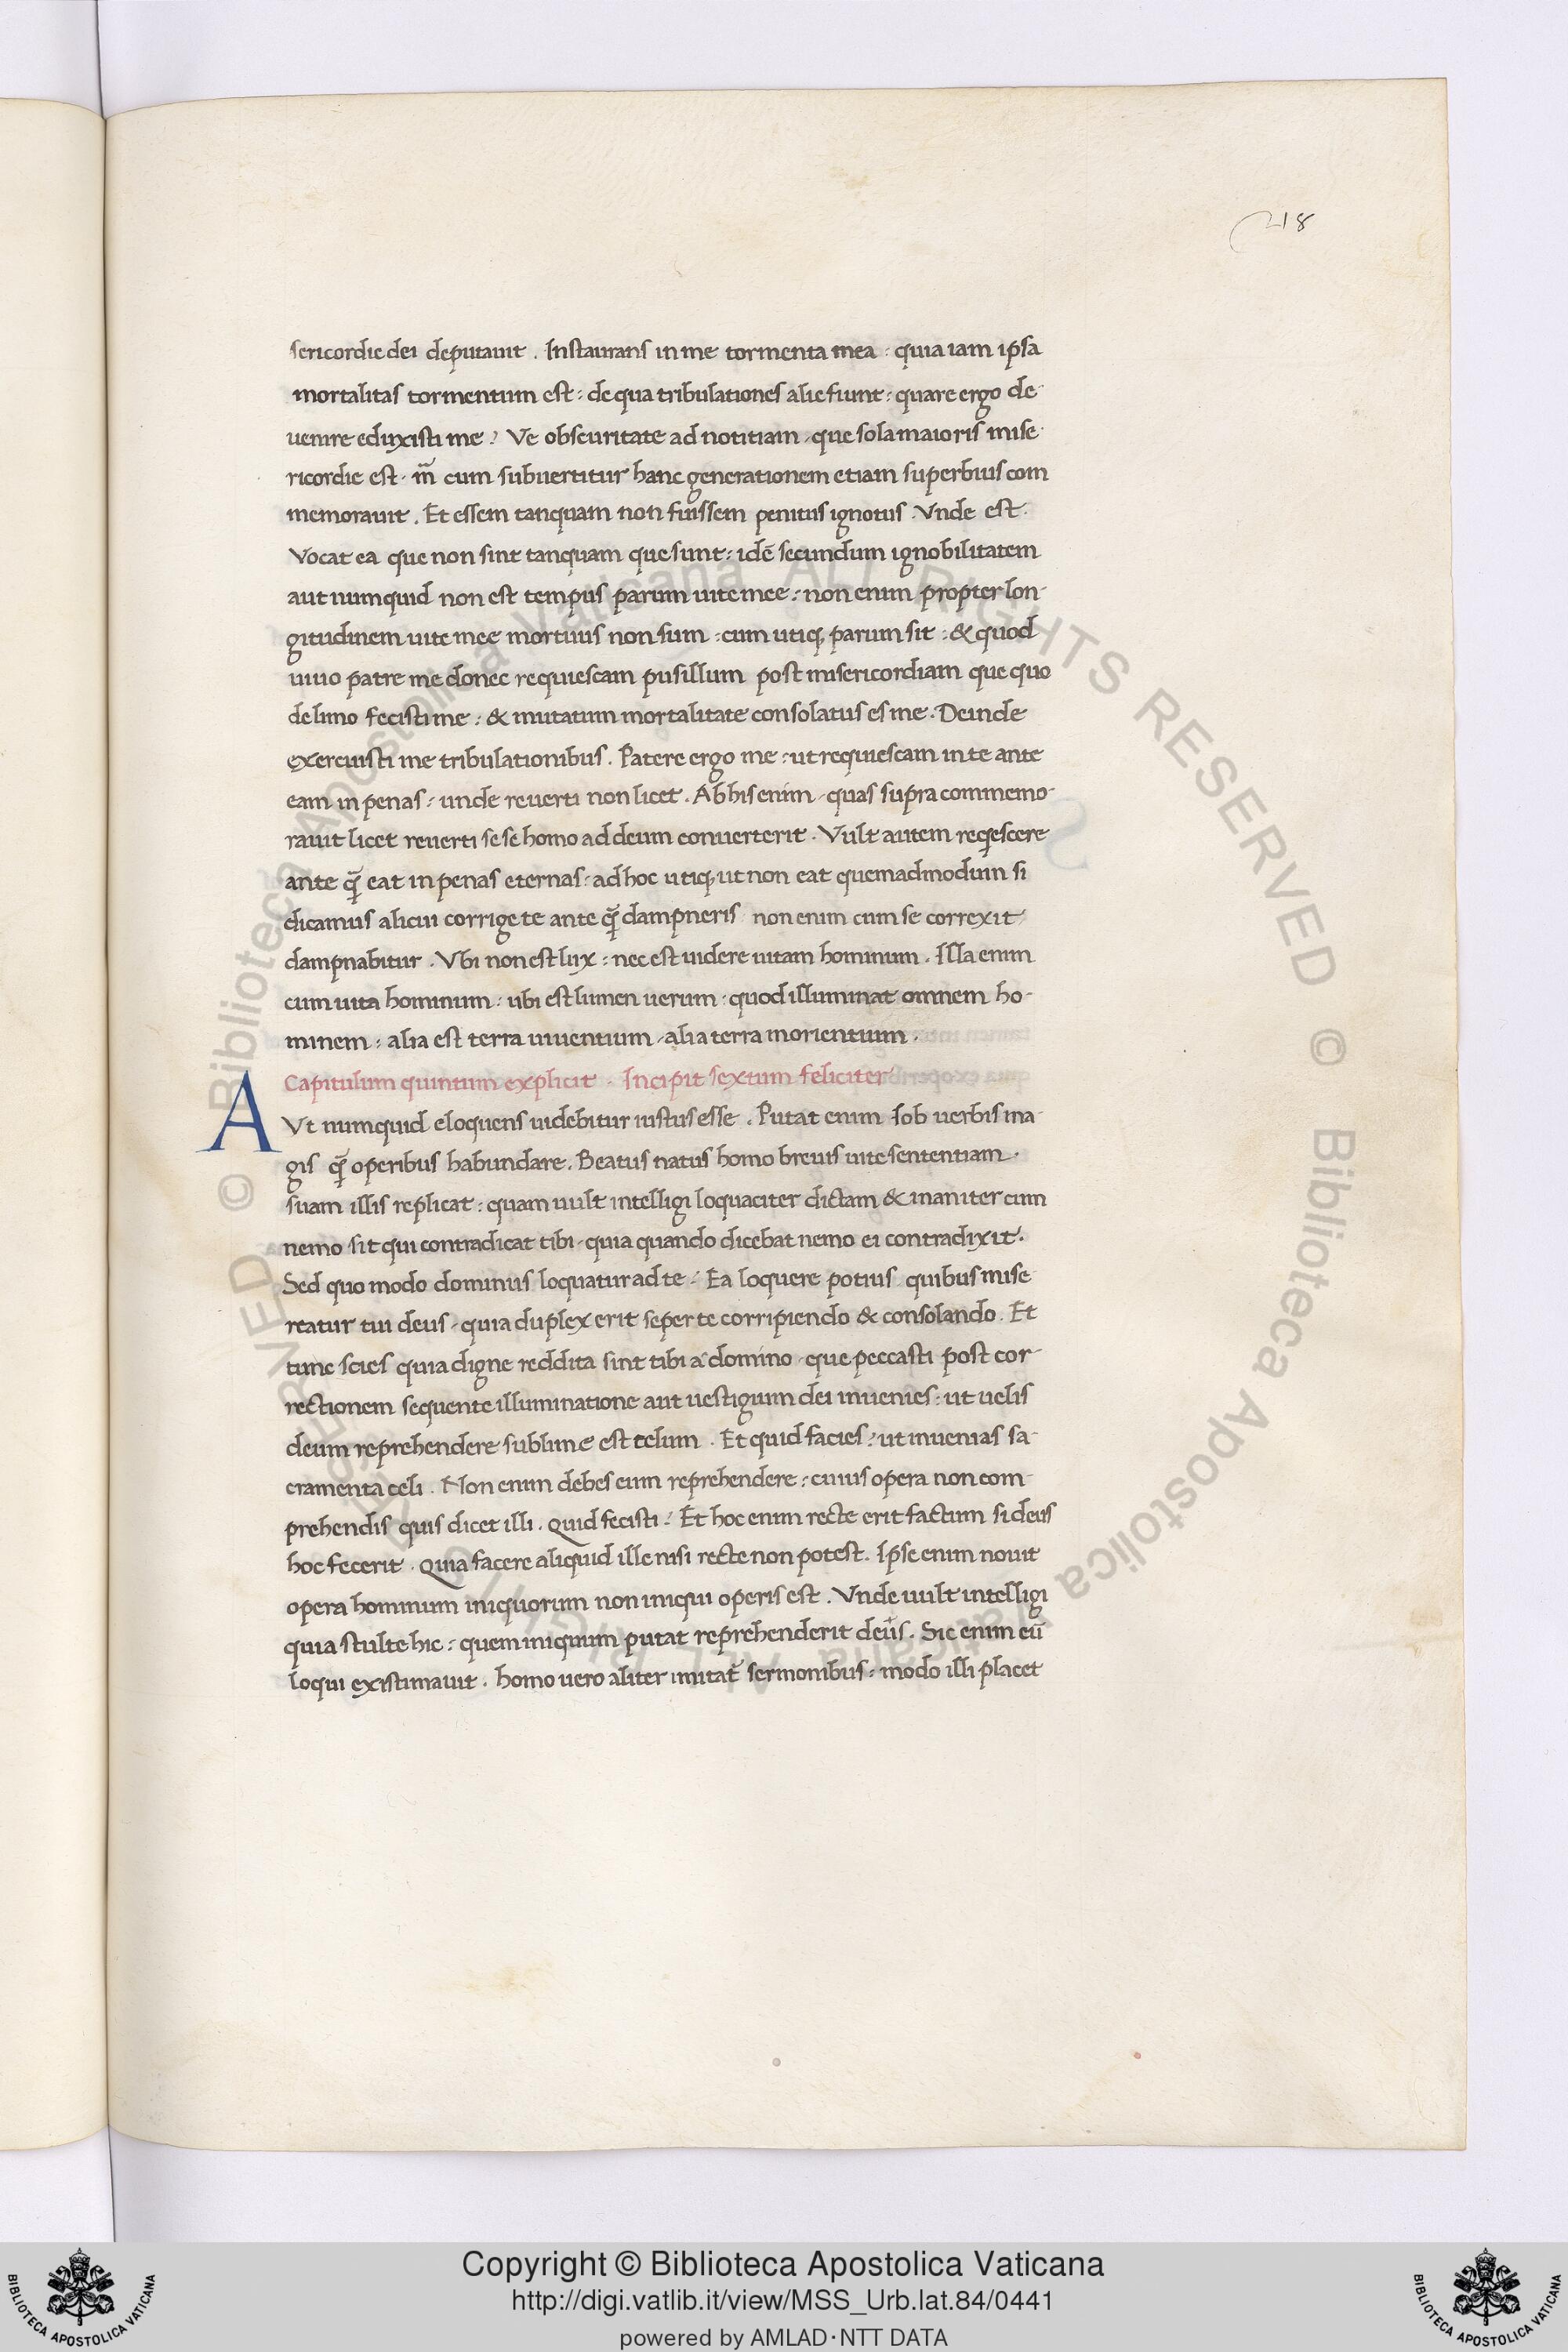 218
sericordie dei deputauit . Instaurans in me tormenta mea : quia iam ipsa
mortalitas tormentum est : de qua tribulationes alie fiunt : quare ergo de
uentre eduxisti me ? Ve obscuritate ad notitiam , que sola maioris mise
ricordie est . m̅ cum subuertitur hanc generationem etiam superbius com
memorauit . Et essem tanquam non fuissem penitus ignotus . Vnde est .
Vocat ea que non sint tanquam que sunt : idē secundum ignobilitatem
aut numquid non est tempus parum uite mee : non enim propter lon-
gitudinem uite mee mortuus non sum : cum utiq; parum sit : & quod
uiuo patre me donec requiescam pusillum post misericordiam que quo
de limo fecisti me : & mutatum mortalitate consolatus es me . Deinde
exercuisti me tribulationibus . Patere ergo me : ut requiescam in te ante
eam in penas : unde reuerti non licet . Ab his enim , quas supra commemo-
rauit licet reuerti se se homo ad deum conuerterit . Vult autem reqescere
ante q̄ eat in penas eternas : ad hoc utiq; ut non eat quemadmodum si
dicamus alicui corrige te ante q̄ dampneris non enim cum se correxit
dampnabitur . Vbi non est lux : nec est uidere uitam hominum . Illa enim
cum uita hominum : ubi est lumen uerum : quod illuminat omnem ho-
minem : alia est terra uiuentium , alia terra morientium .
Capitulum quintum explicit . Incipit sextum feliciter
A Vt numquid eloquens uidebitur iustus esse . Putat enim Iob uerbis ma
gis q̄ operibus habundare . Beatus natus homo breuis uite sententiam .
suam illis replicat : quam uult intelligi loquaciter dictam & inaniter cum
nemo sit qui contradicat tibi , quia quando dicebat nemo ei contradixit .
Sed quo modo dominus loquatur ad te ? Ea loquere potius quibus mise
reatur tui deus , quia duplex erit seper te corripiendo & consolando . Et
tunc scies quia digne reddita sint tibi a domino , que peccasti post cor-
rectionem sequente illuminatione aut uestigium dei inuenies : ut uelis
deum reprehendere sublime est telum . Et quid facies : ut inuenias sa-
cramenta celi . Non enim debes eum reprehendere : cuius opera non com-
prehendis quis dicet illi . Quid fecisti ? Et hoc enim recte erit factum si deus
hoc fecerit . Quia facere aliquid ille nisi recte non potest . Ipse enim nouit
opera hominum iniquorum non iniqui operis est . Vnde uult intelligi
quia stulte hic : quem iniquum putat reprehenderit deus . Sic enim eū
loqui existimauit . homo uero aliter imitat̄ sermonibus : modo illi placet
© Biblioteca Apostolica Vaticana ALL RIGHTS RESERVED © Biblioteca Apostolica Vaticana ALL RIGHTS RESERVED
Copyright © Biblioteca Apostolica Vaticana
http://digi.vatlib.it/view/MSS_Urb.lat.84/0441
powered by AMLAD·NTT DATA
BIBLIOTECA APOSTOLICA VATICANA
BIBLIOTECA APOSTOLICA VATICANA